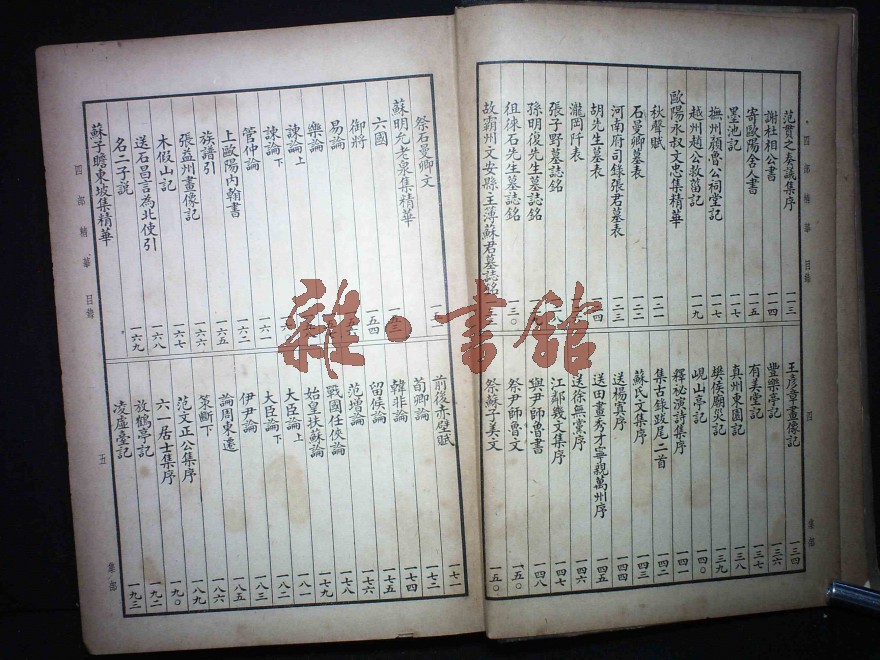 四部精華 目錄
四
集部
范貫之奏議集序 一一三
謝杜相公書 一一四
寄歐陽舍人書 一一五
墨池記 一一七
撫州顏魯公祠堂記 一一七
越州趙公救菑記 一一九
歐陽永叔文忠集精華
秋聲賦 一二一
石曼卿墓表 一二二
河南府司錄張君墓表 一二三
胡先生墓表
瀧岡阡表
張子野墓誌銘
孫明復先生墓誌銘
徂徠石先生墓誌銘 一三〇
故霸州文安縣主簿蘇君墓誌銘
王彥章畫像記 一三四
豐樂亭記 一三六
有美堂記 一三七
真州東園記 一三八
樊侯廟災記 一三九
峴山亭記 一四〇
釋秘演詩集序 一四一
集古錄跋尾二首 一四二
蘇氏文集序 一四三
送楊寘序 一四四
送田畫秀才寧親萬州序 一四五
送徐無黨序 一四六
江鄰幾文集序 一四七
與尹師魯書 一四八
祭尹師魯文 一五〇
祭蘇子美文 一五〇
祭石曼卿文
蘇明允老泉集精華
六國 一五三
御將 一五四
易論
樂論
諫論上
諫論下
管仲論 一六一
上歐陽內翰書 一六二
族譜引 一六五
張益州畫像記 一六六
木假山記 一六七
送石昌言為北使引 一六八
名二子說 一六九
蘇子瞻東坡集精華
前後赤壁賦 一七一
荀卿論 一七二
韓非論 一七四
留侯論 一七五
范增論 一七六
戰國任俠論 一七八
始皇扶蘇論 一七九
大臣論上 一八一
大臣論下 一八二
伊尹論 一八三
論周東遷 一八五
策斷下 一八六
范文正公集序 一八九
六一居士集序 一九〇
放鶴亭記 一九二
凌虛臺記 一九三
四部精華 目錄
五
集部
雜·書館